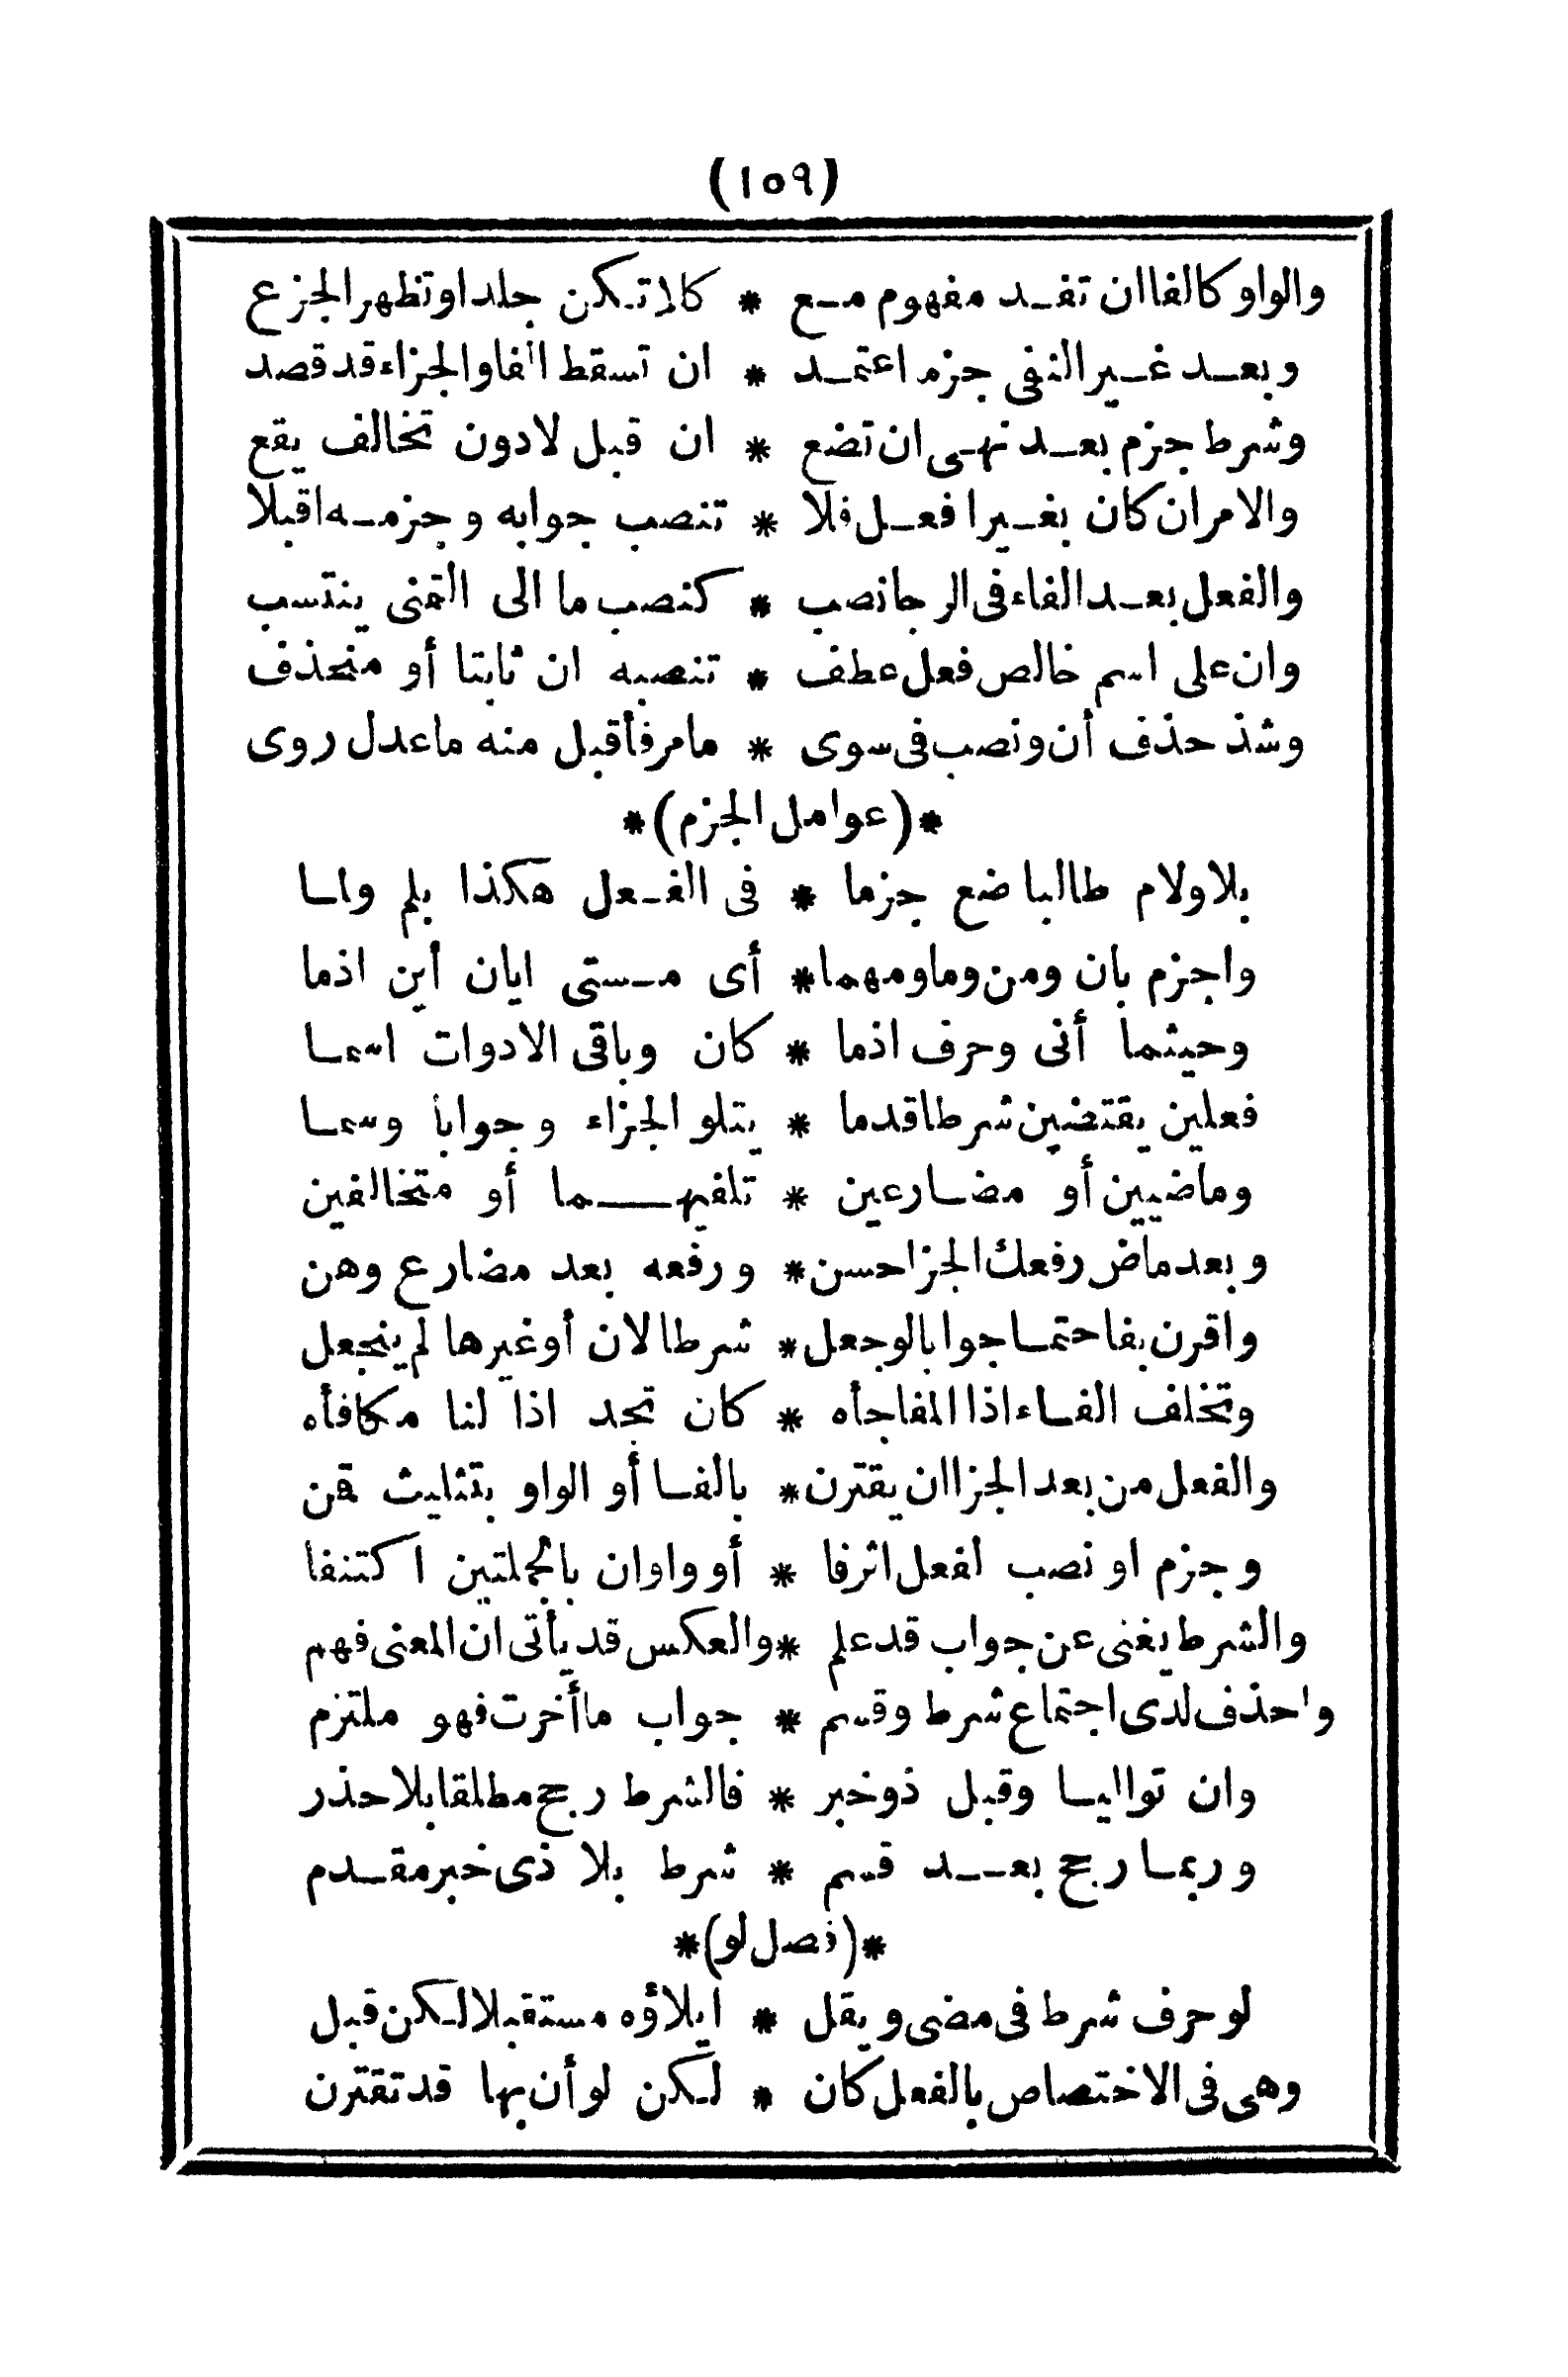 (١٥٩)
والواو كالفا ان تفد مفهوم مع * كلا تكن جلدا وتظهر الجزع
وبعد غير النفى جزم اعتمد * ان تسقط الفا والجزاء قد قصد
وشرط جزم بعد نهى ان تضع * ان قبل لا دون تخالف يقع
والامر ان كان بغير افعل فلا * تنصب جوابه وجزمه اقبلا
والفعل بعد الفاء فى الرجا نصب * كنصب ما الى التمنى ينتسب
وان على اسم خالص فعل عطف * تنصبه ان ثابتا أو منحذف
وشذ حذف أن ونصب فى سوى * مامر فأقبل منه ما عدل روى
*(عوامل الجزم)*
بلا ولام طالبا ضع جزما * فى الفعل هكذا بلم ولما
واجزم بان ومن وما ومهما * أى متى ايان أين اذما
وحيثما أنى وحرف اذما * كان وباقى الادوات اسما
فعلين يقتضين شرط اقدما * يتلو الجزاء وجوابا وسما
وماضيين أو مضارعين * تلفيهما أو متخالفين
وبعد ماض رفعك الجزا حسن * ورفعه بعد مضارع وهن
واقرن بفا حتما جوابا لو جعل * شرطا لان أو غيرها لم ينجعل
وتخلف الفاء اذا المفاجأه * كان تجد اذا لنا مكافأه
والفعل من بعد الجزا ان يقترن * بالفا أو الواو بتثليث قمن
وجزم او نصب لفعل اثرفا * أو واو ان بالجملتين اكتنفا
والشرط يغنى عن جواب قد علم * والعكس قد يأتى ان المعنى فهم
واحذف لدى اجتماع شرط وقسم * جواب ما أخرت فهو ملتزم
وان تواليا وقبل ذو خبر * فالشرط رجح مطلقا بلا حذر
وربما رجح بعد قسم * شرط بلا ذى خبر مقدم
*(فصل لو)*
لو حرف شرط فى مضى ويقل * ايلاؤه مستقبلا لكن قبل
وهى فى الاختصاص بالفعل كان * لكن لو أن بها قد تقترن